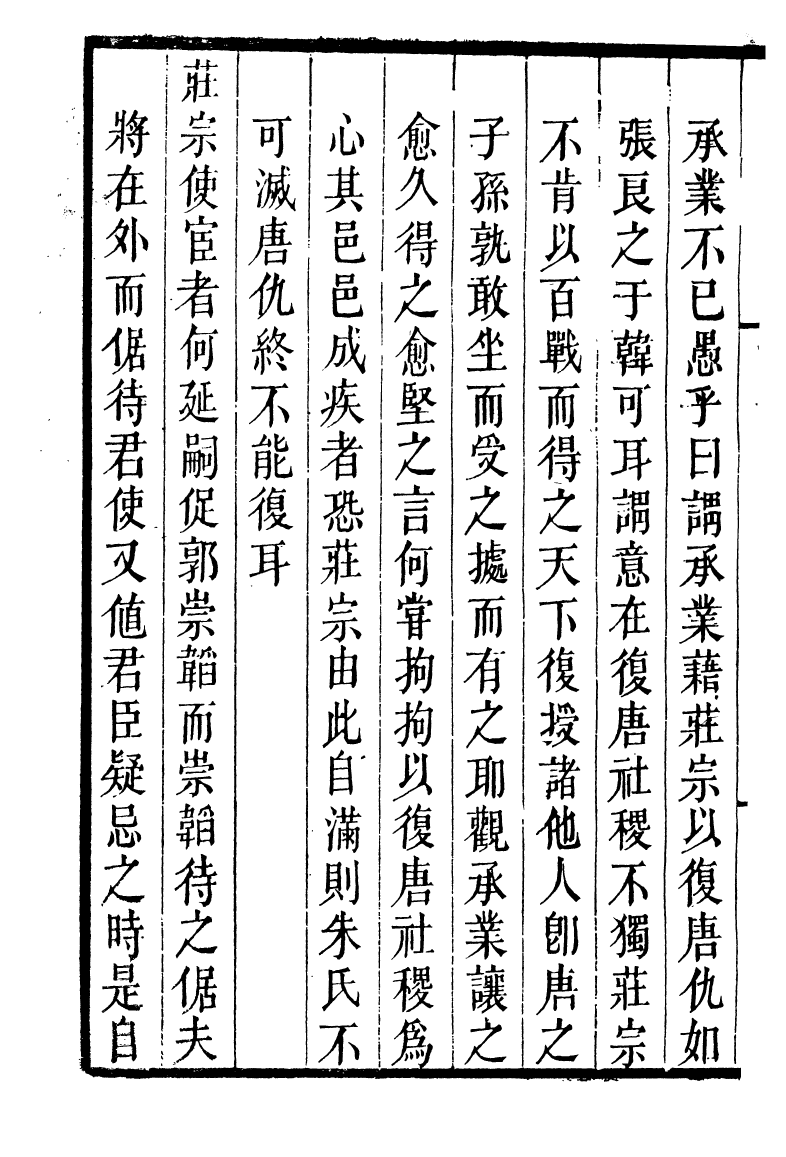 承業不已愚乎曰謂承業藉莊宗以復唐仇如
張良之于韓可耳謂意在復唐社稷不獨莊宗
不肯以百戰而得之天下復授諸他人卽唐之
子孫孰敢坐而受之據而有之耶觀承業讓之
愈久得之愈堅之言何嘗拘拘以復唐社稷爲
心其邑邑成疾者恐莊宗由此自滿則朱氏不
可滅唐仇終不能復耳
莊宗使宦者何延嗣促郭崇韜而崇韜待之倨夫
將在外而倨待君使又値君臣疑忌之時是自